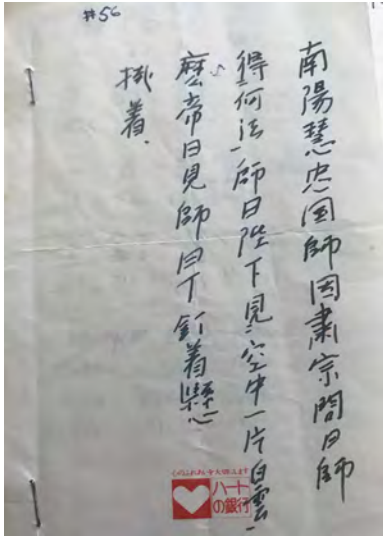 #56
南陽慧忠国師因粛宗問曰師
得何法師曰陛下見空中一片白雲
麼帝曰見師曰丁釘着懸
掛着、
ハート
の銀行